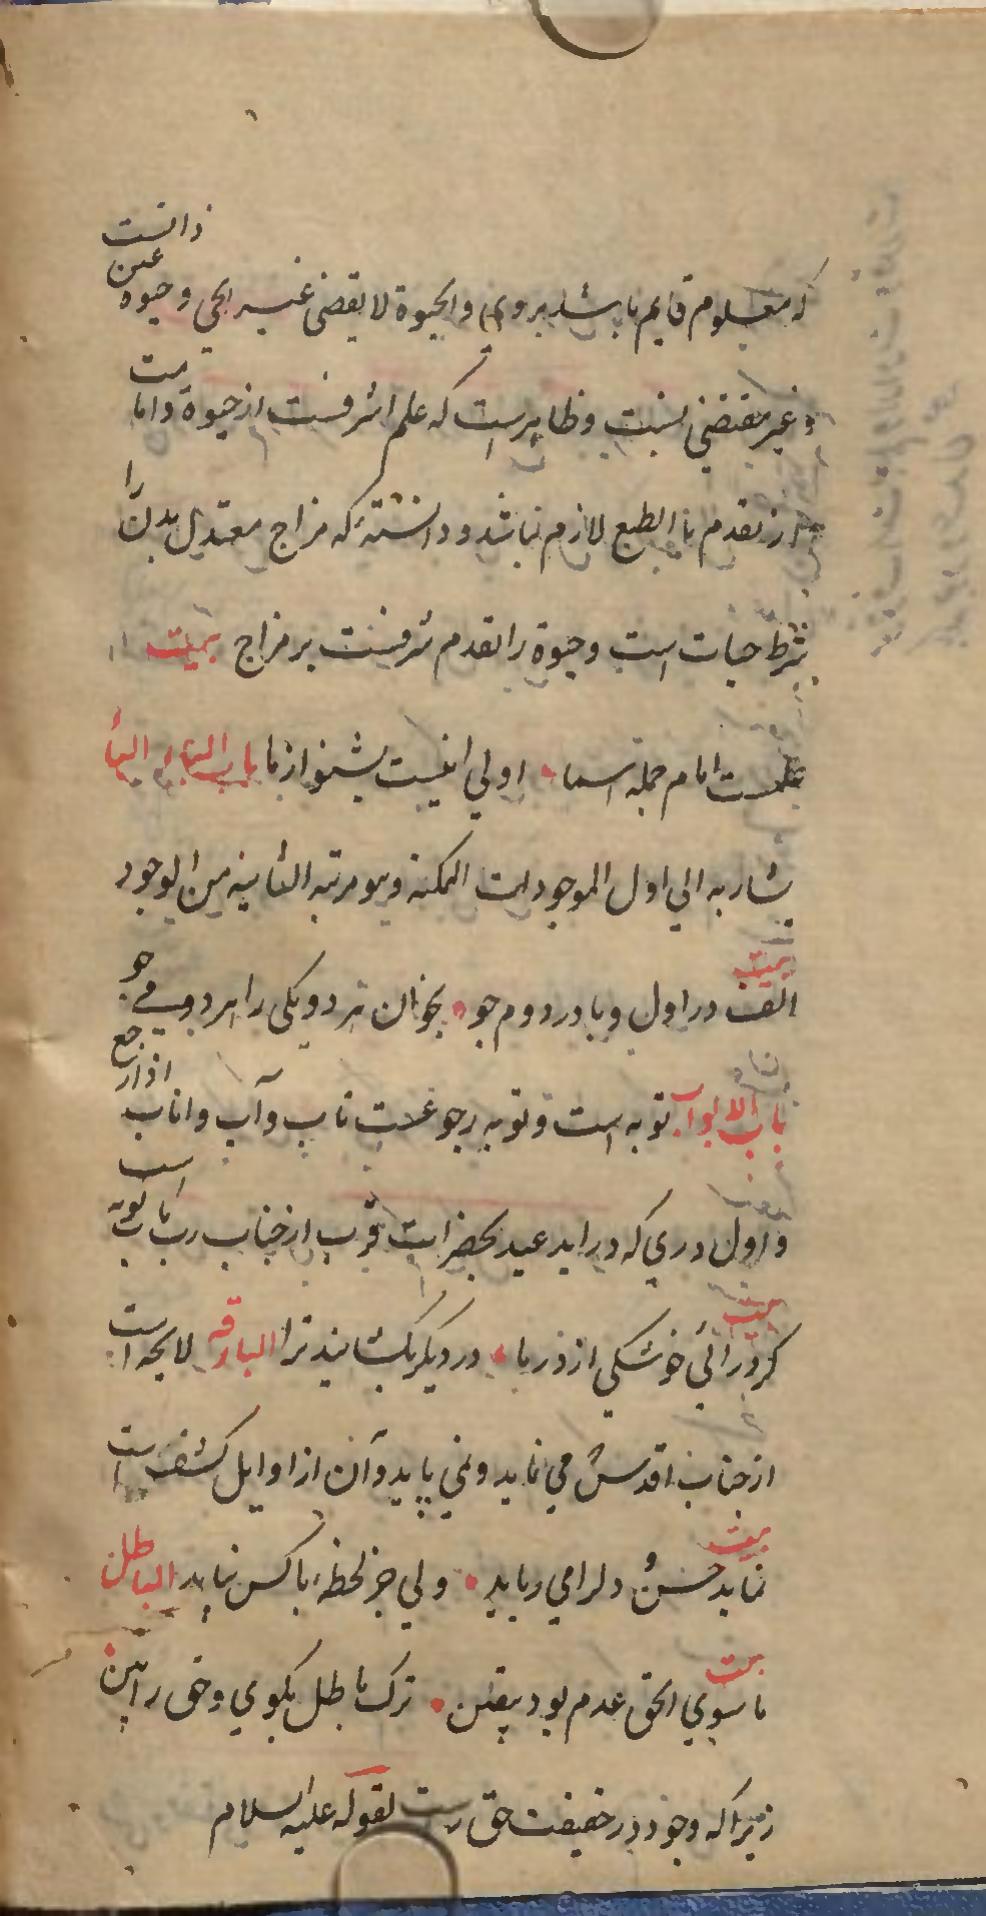 که معلوم قایم باشد بروی والحیوة لا یقضی غیر الحی و حیوة عین ذاتست
و غیر مقتضی نسبت و ظاهرست که علم اشرفست از حیوة و امامت
از تقدم بالطبع لازم نباشد و دانسته که مزاج معتدل بدن را
شرط حیات است و حیوة را تقدم شرفست بر مزاج بیت
علمست امام جمله اسما اولی اینست بشنو از ما باب الباء الباء
یشار به الی اول الموجودات الممکنة و هو مرتبة الثانیه من الوجود
بیت
الف در اول و با در دوم جو بخوان هر دو یکی را هر دو می جو
باب الابواب توبه است و توبه رجوعست تاب و آب و اناب اذا رجع
و اول دری که در اید عبد بحضرات قرب از جناب رب باب توبه است
بیت
کر درائی خوشکی از در ما در دیکر بکشایند ترا البارقه لایحه است
از جناب اقدس می نماید و نمی پاید و آن از اوایل کشف است
بیت
نماید حسن و دلرا می رباید ولی جز لحظه با کس نپاید الباطل
بیت
ما سوی الحق عدم بود بیقین ترک باطل بکوی و حق را بین
زیرا که وجود در حقیقت حق است لقوله علیه السلام